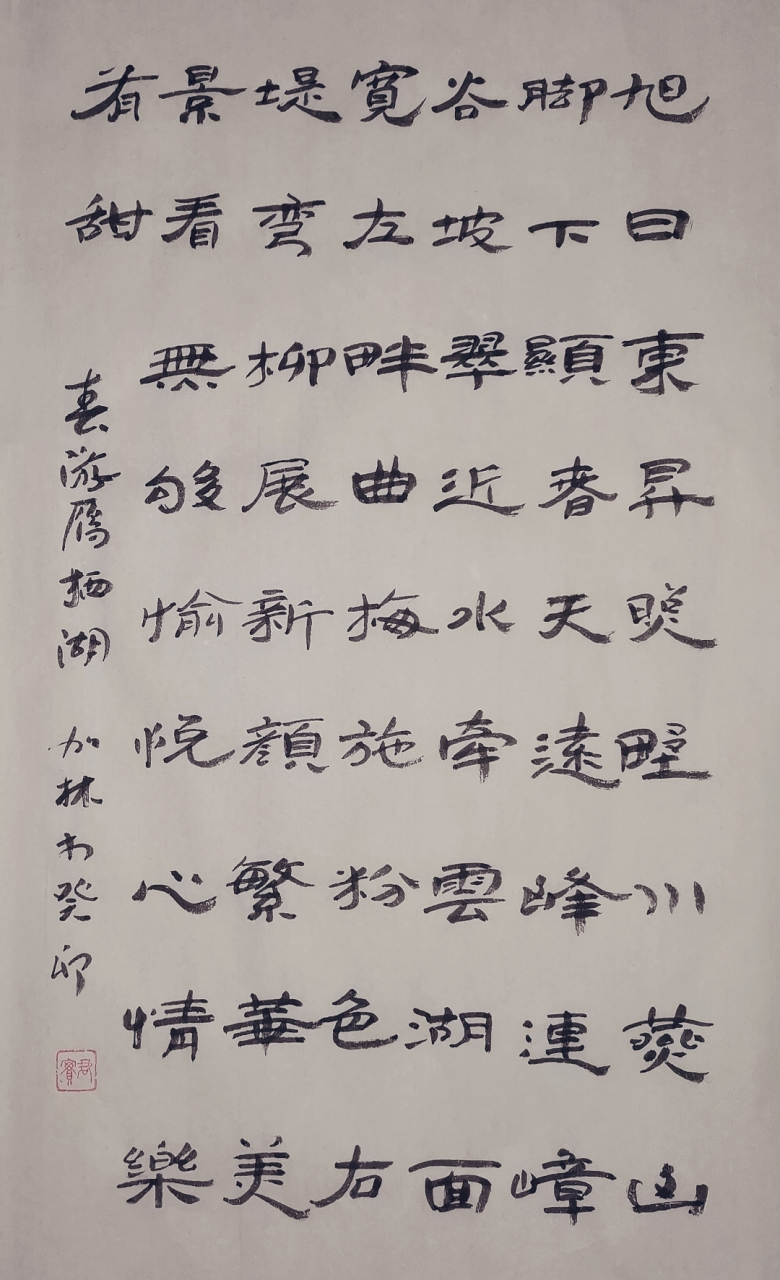 旭日東昇暎野川燕山
脚下顯春天遠峰連嶂
谷坡翠近水牽雲湖面
寬左畔曲梅施粉色右
堤弯柳展新顏繁華美
景看無够愉悦心情樂
有甜
春游雁栖湖 加林书癸卯